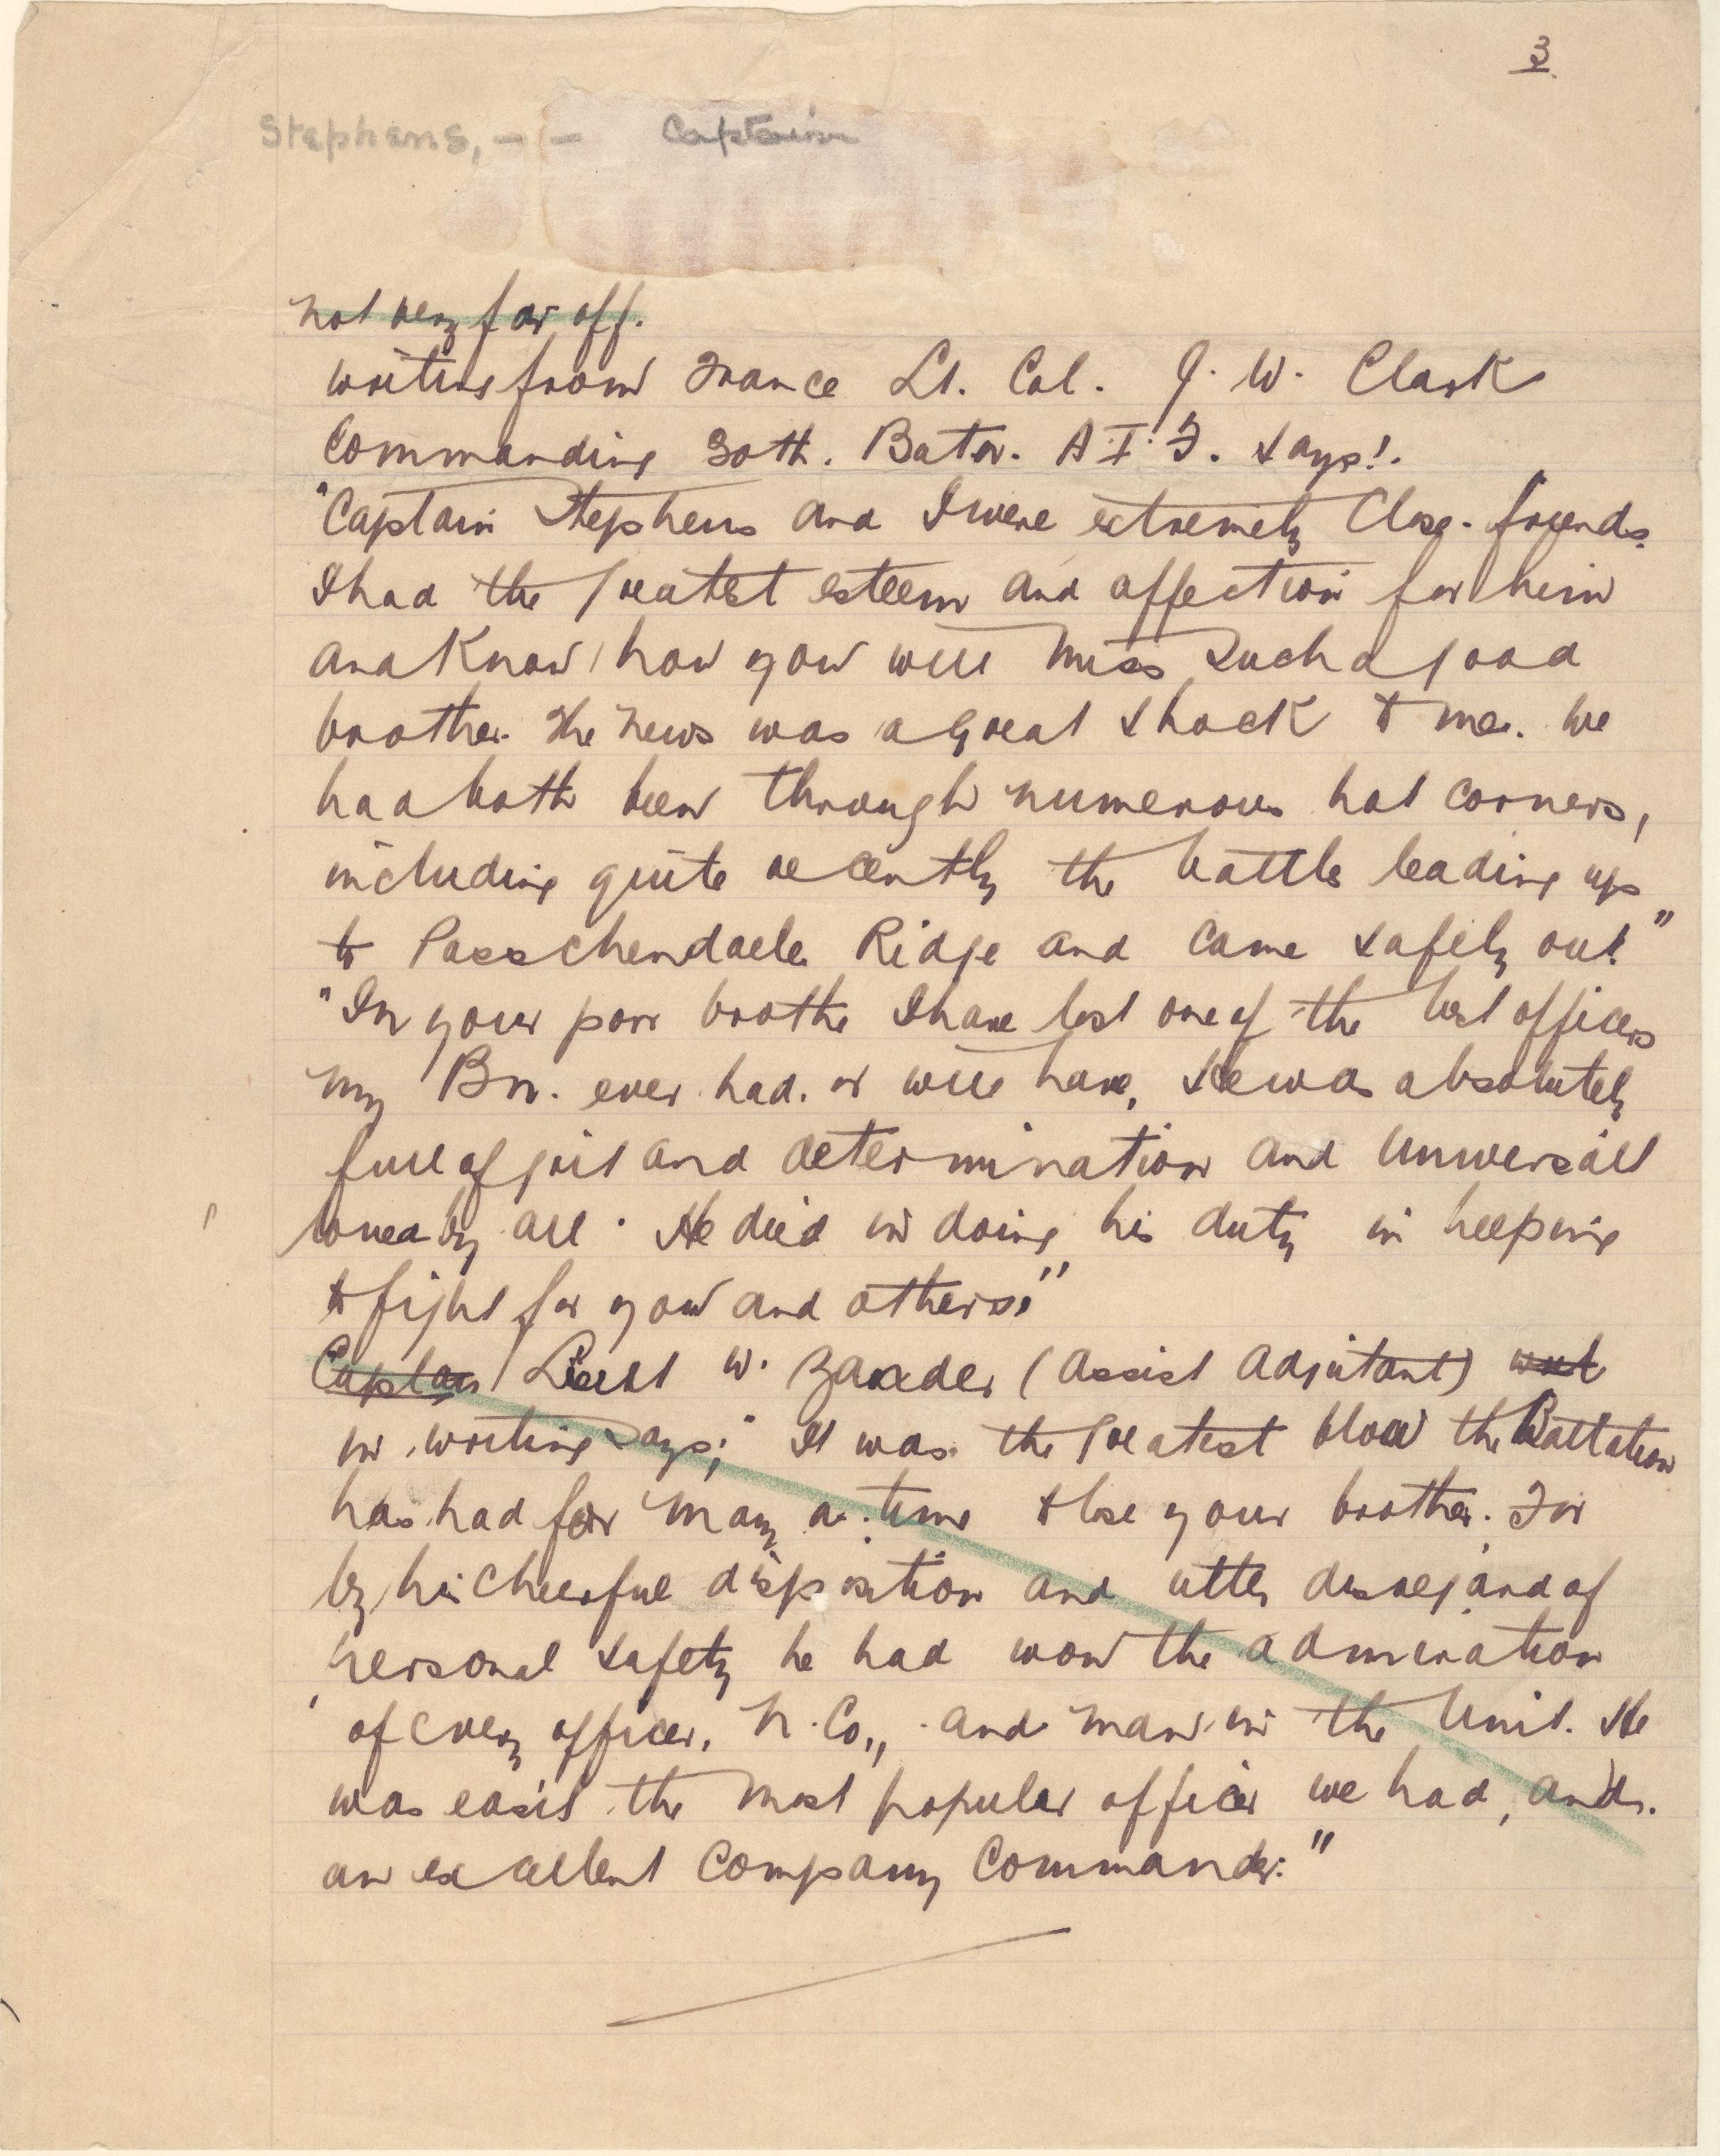 3
Stephens, - - Captain
not very far off.
writing from France Lt. Col. J. W. Clark
Commanding 30th. Batn. A.I.F. says:.
"Captain Stephens and I were extremely close. friends.
I had the greatest esteem and affection for him
and know how you will miss such a good
brother. The news was a great shock to me. We
had both been through numerous hot corners,
including quite recently the battle leading up
to Passchendaele Ridge and came safely out."
"In your poor brother I have lost one of the best officers
my Bn. ever had. or will have, He was absolutely
full of grit and determination and universall
loved by all. He died in doing his duty in helping
to fight for you and others."
Captain Lieut W. Zander (Assist Adjutant) wrot
in writing says; "It was the greatest blow the Battalion
has had for many a time to lose your brother. For
by his cheerful disposition and utter disregard of
personal safety he had won the admiration
of every officer, N.Co., and man in the Unit. He
was easily the most popular officer we had, and.
an excellent Company Commander."